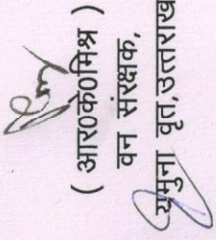 ( आर०के०मिश्र )
वन संरक्षक,
यमुना वृत,उत्तराख